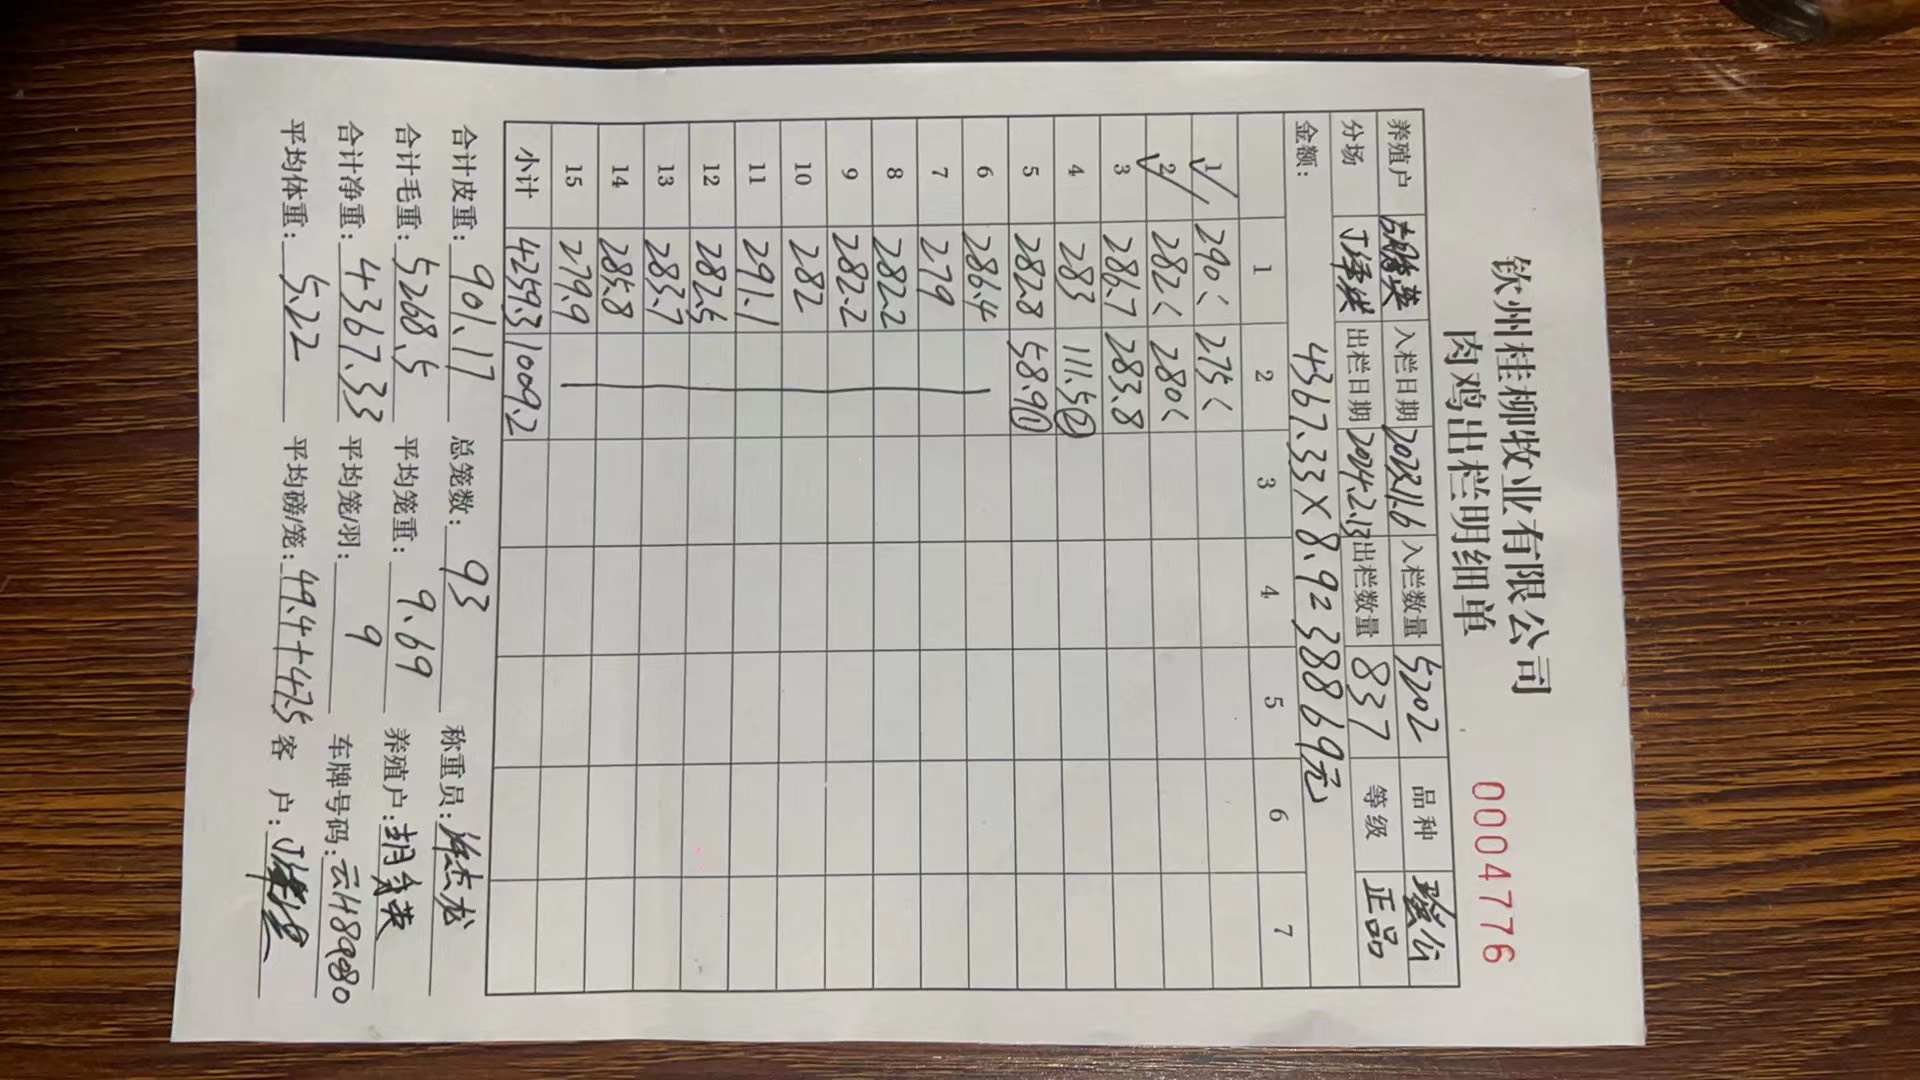 钦州桂柳牧业有限公司
肉鸡出栏明细单
0004776
养殖户 入栏日期 2023.11.6 入栏数量 5202 品种
分场 出栏日期 2024.2.13 出栏数量 837 等级 正品
金额: 4367.33×8.9=38869元
1 2 3 4 5 6 7
1 290.5 275.5
2 282.5 280.5
3 286.7 283.8
4 283 111.5②
5 282.8 58.9①
6 286.4
7 279
8 282.2
9 282.2
10 282
11 291.1
12 282.5
13 283.7
14 285.8
15 279.9
小计 4259.3 1009.2
合计皮重: 901.17 总笼数: 93 称重员: 徐杰龙
合计毛重: 5268.5 平均笼重: 9.69 养殖户:
合计净重: 4367.33 平均笼/羽: 9 车牌号码: 云H89080
平均体重: 5.22 平均磅/笼: 49.4+47.5 客 户: